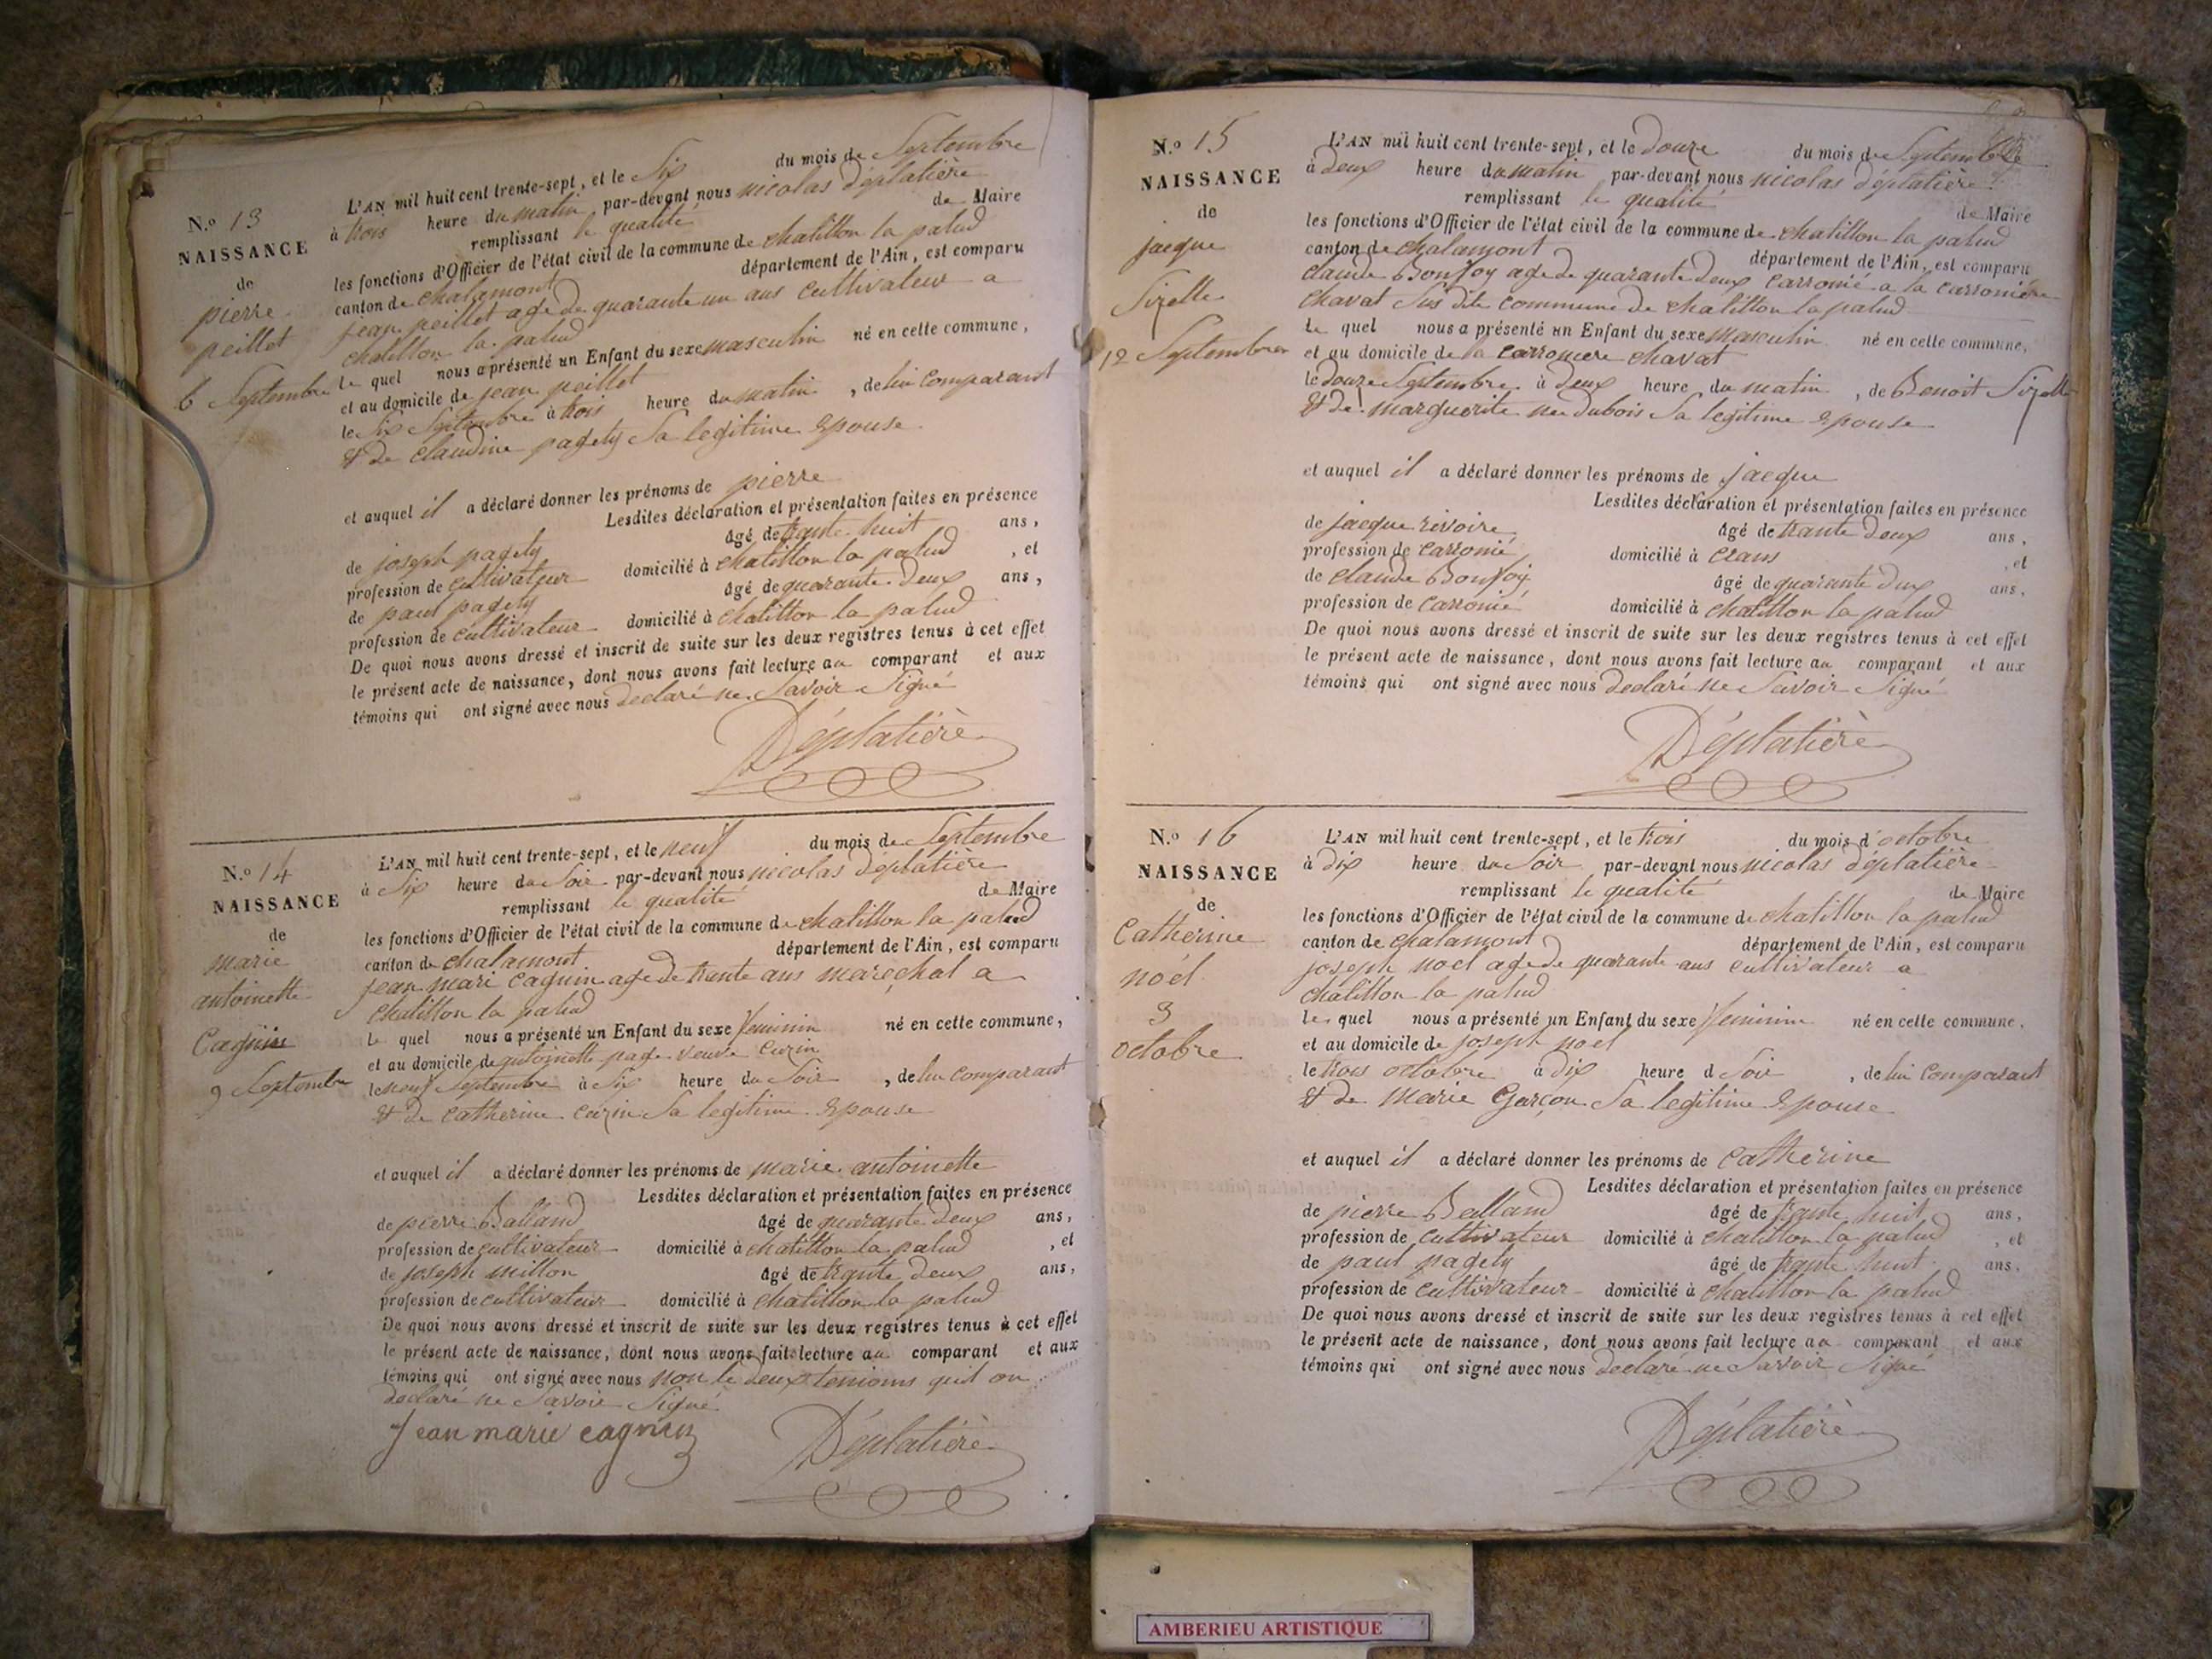 N.º 13
NAISSANCE
de
pierre
peillet
6 Septembre
L'AN mil huit cent trente-sept, et le Six du mois de Septembre
à trois heure du matin par-devant nous nicolas déplatière
remplissant le qualité de Maire
les fonctions d'Officier de l'état civil de la commune de chatillon la palud
canton de chalamont département de l'Ain, est comparu
jean peillet age de quarante un ans cultivateur a
chatillon la palud
le quel nous a présenté un Enfant du sexe masculin né en cette commune,
et au domicile de jean peillet
le Six Septembre à trois heure du matin, de lui comparant
& de claudine pagety Sa legitime Epouse
et auquel il a déclaré donner les prénoms de pierre
Lesdites déclaration et présentation faites en présence
de joseph pagety âgé de trante huit ans,
profession de cultivateur domicilié à chatillon la palud, et
de paul pagety âgé de quarante deux ans,
profession de cultivateur domicilié à chatillon la palud
De quoi nous avons dressé et inscrit de suite sur les deux registres tenus à cet effet
le présent acte de naissance, dont nous avons fait lecture au comparant et aux
témoins qui ont signé avec nous declaré ne Savoir Signé
Déplatière
N.º 14
NAISSANCE
de
marie
antoinette
Cagnin
9 Septembre
L'AN mil huit cent trente-sept, et le neuf du mois de Septembre
à Six heure du Soir par-devant nous nicolas déplatière
remplissant le qualité de Maire
les fonctions d'Officier de l'état civil de la commune de chatillon la palud
canton de chalamont département de l'Ain, est comparu
jean mari cagnin age de trente ans marechal a
chatillon la palud
le quel nous a présenté un Enfant du sexe feminin né en cette commune,
et au domicile de antoinette page veuve curin
le neuf Septembre à Six heure du Soir, de lui comparant
& de catherine curin Sa legitime Epouse
et auquel il a déclaré donner les prénoms de marie antoinette
Lesdites déclaration et présentation faites en présence
de pierre Balland âgé de quarante deux ans,
profession de cultivateur domicilié à chatillon la palud, et
de joseph millon âgé de trante deux ans,
profession de cultivateur domicilié à chatillon la palud
De quoi nous avons dressé et inscrit de suite sur les deux registres tenus à cet effet
le présent acte de naissance, dont nous avons fait lecture au comparant et aux
témoins qui ont signé avec nous non le deux temioms quil on
declaré ne Savoir Signé
Jean marie cagnin Déplatière
N.º 15
NAISSANCE
de
jacque
Sizelle
12 Septembre
L'AN mil huit cent trente-sept, et le douze du mois de Septembre
à deux heure du matin par-devant nous nicolas déplatière
remplissant le qualité de Maire
les fonctions d'Officier de l'état civil de la commune de chatillon la palud
canton de chalamont département de l'Ain, est comparu
claude Bonfoy age de quarante deux carronié a la carroniére
chavat Sus dite commune de chatillon la palud
le quel nous a présenté un Enfant du sexe masculin né en cette commune,
et au domicile de la carroniere chavat
le douze Septembre à deux heure du matin, de Benoit Sizelle
& de marguerite nee dubois Sa legitime Epouse
et auquel il a déclaré donner les prénoms de jacque
Lesdites déclaration et présentation faites en présence
de jacque rivoire âgé de trante deux ans,
profession de carronié domicilié à crans, et
de claude Bonfoy âgé de quarante dux ans,
profession de carronié domicilié à chatillon la palud
De quoi nous avons dressé et inscrit de suite sur les deux registres tenus à cet effet
le présent acte de naissance, dont nous avons fait lecture au comparant et aux
témoins qui ont signé avec nous declaré ne Savoir Signé
Déplatière
N.º 16
NAISSANCE
de
Catherine
noél
3
octobre
L'AN mil huit cent trente-sept, et le trois du mois d'octobre
à dix heure du Soir par-devant nous nicolas déplatière
remplissant le qualité de Maire
les fonctions d'Officier de l'état civil de la commune de chatillon la palud
canton de chalamont département de l'Ain, est comparu
joseph noel age de quarante ans cultivateur a
chatillon la palud
le quel nous a présenté un Enfant du sexe feminin né en cette commune,
et au domicile de joseph noel
le trois octobre à dix heure d Soir, de lui comparant
& de Marie Garçon Sa legitime Epouse
et auquel il a déclaré donner les prénoms de catherine
Lesdites déclaration et présentation faites en présence
de pierre Balland âgé de trante huit ans,
profession de cultivateur domicilié à chatillon la palud, et
de paul pagety âgé de trante huit ans,
profession de cultivateur domicilié à chatillon la palud
De quoi nous avons dressé et inscrit de suite sur les deux registres tenus à cet effet
le présent acte de naissance, dont nous avons fait lecture au comparant et aux
témoins qui ont signé avec nous declaré ne Savoir Signé
Déplatière
AMBERIEU ARTISTIQUE